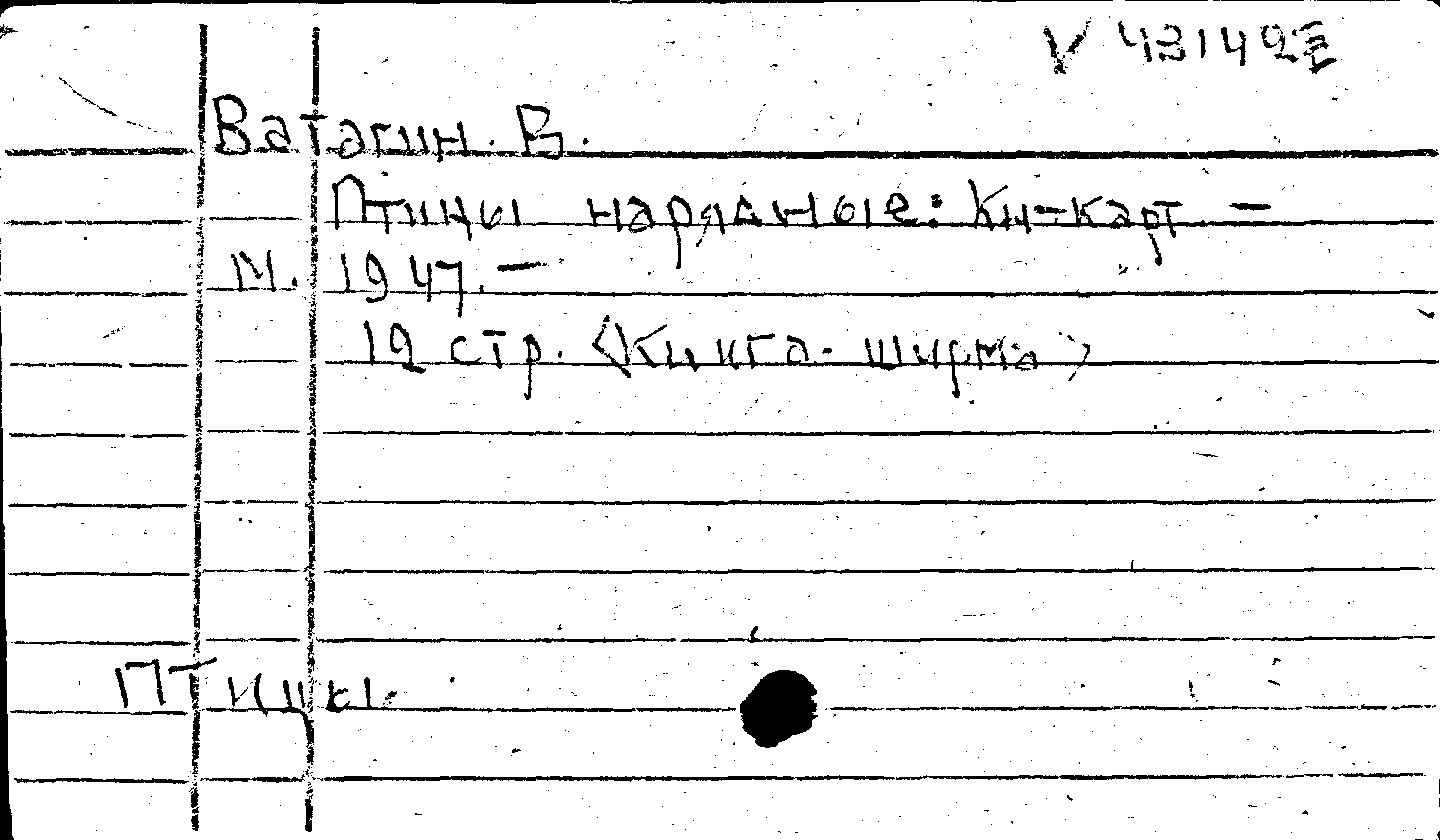 V 43142
Ватагин. В.
Птицы нарядные: Кн-карт –
М. 1947. –
12 стр. <Книга-ширма>
птицы